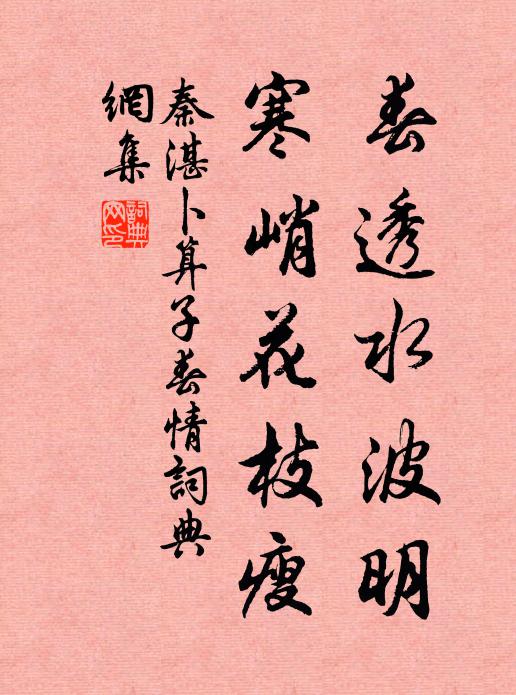 春透水波明
寒峭花枝瘦
秦湛卜算子春情詞典
網集
詞典
网印